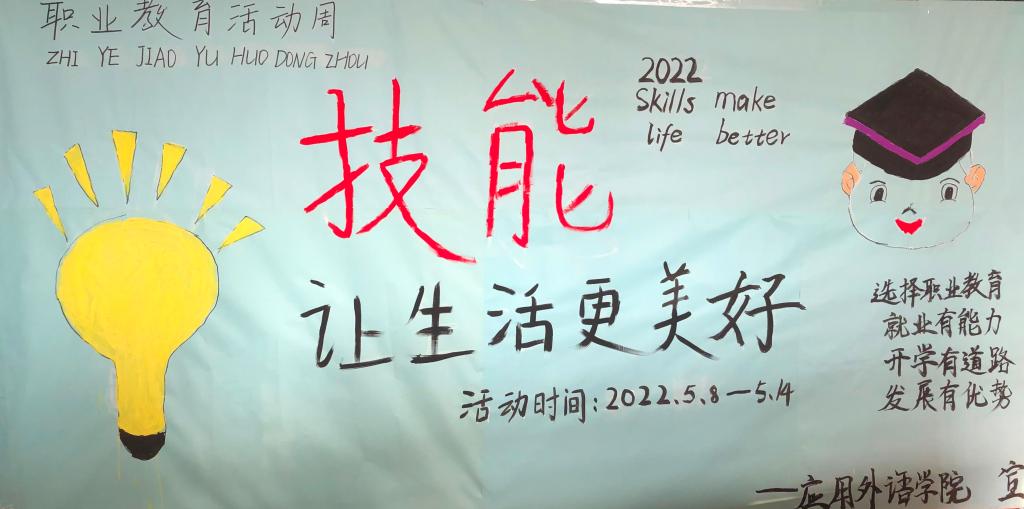 职业教育活动周
ZHI YE JIAO YU HUO DONG ZHOU
技能
2022
Skills make
life better
让生活更美好
活动时间:2022.5.8—5.14
选择职业教育
就业有能力
开学有道路
发展有优势
—应用外语学院 宣